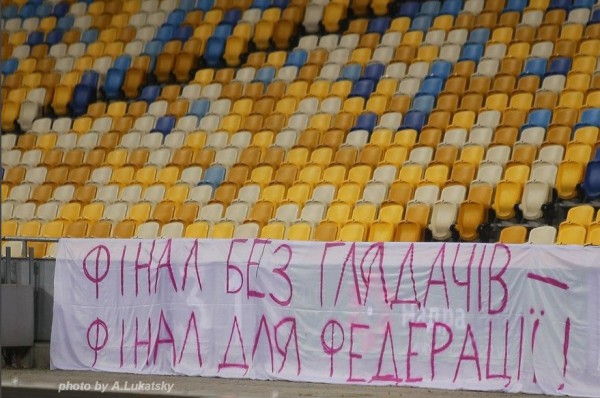 ФІНАЛ БЕЗ ГЛЯДАЧІВ –
ФІНАЛ ДЛЯ ФЕДЕРАЦІЇ!
Надра
photo by A.Lukatsky